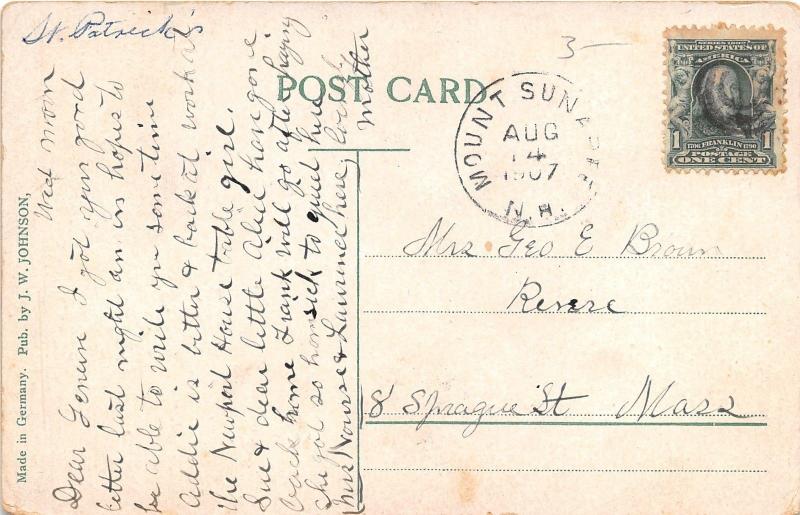 St. Patrick's
3 —
POST CARD.
MOUNT SUNAPEE
AUG
14
1907
N.H.
SERIES 1902
UNITED STATES OF
AMERICA
1
1706 FRANKLIN 1790
1
POSTAGE
ONE CENT
Mrs Geo E Brown
Revere
8 Sprague St Mass
Wed morn
Dear I got your good
letter last night am in hopes to
be able to write you some time
Addie is better & back at work at
the Newport House table girl.
Sue & dear little Alice have gone
back home Frank will go after haying
She got so homesick to quiet here
Mrs Nourse & Laurence here
Mother
Made in Germany. Pub. by J. W. JOHNSON,